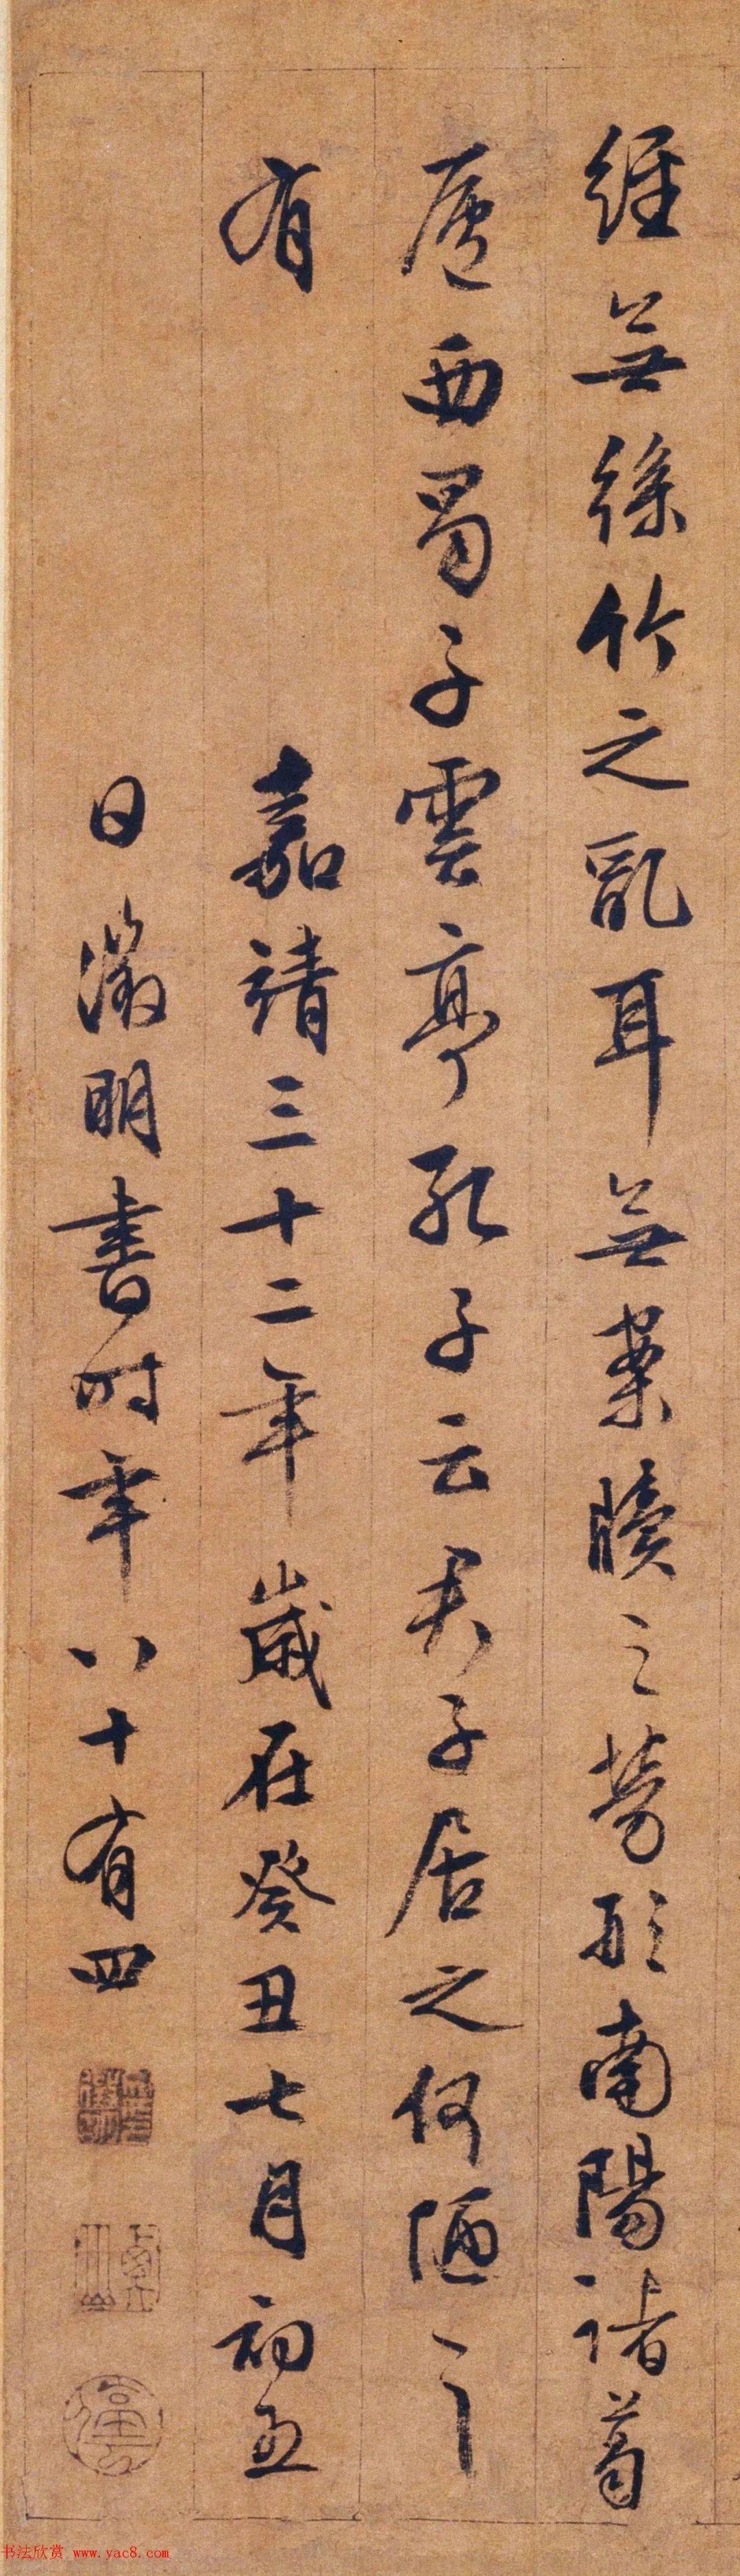 經無絲竹之亂耳無案牘之勞形南陽諸葛
廬西蜀子雲亭孔子云君子居之何陋之
有
嘉靖三十二年歲在癸丑七月初五
日徵明書時年八十有四
书法欣赏 www.yac8.com